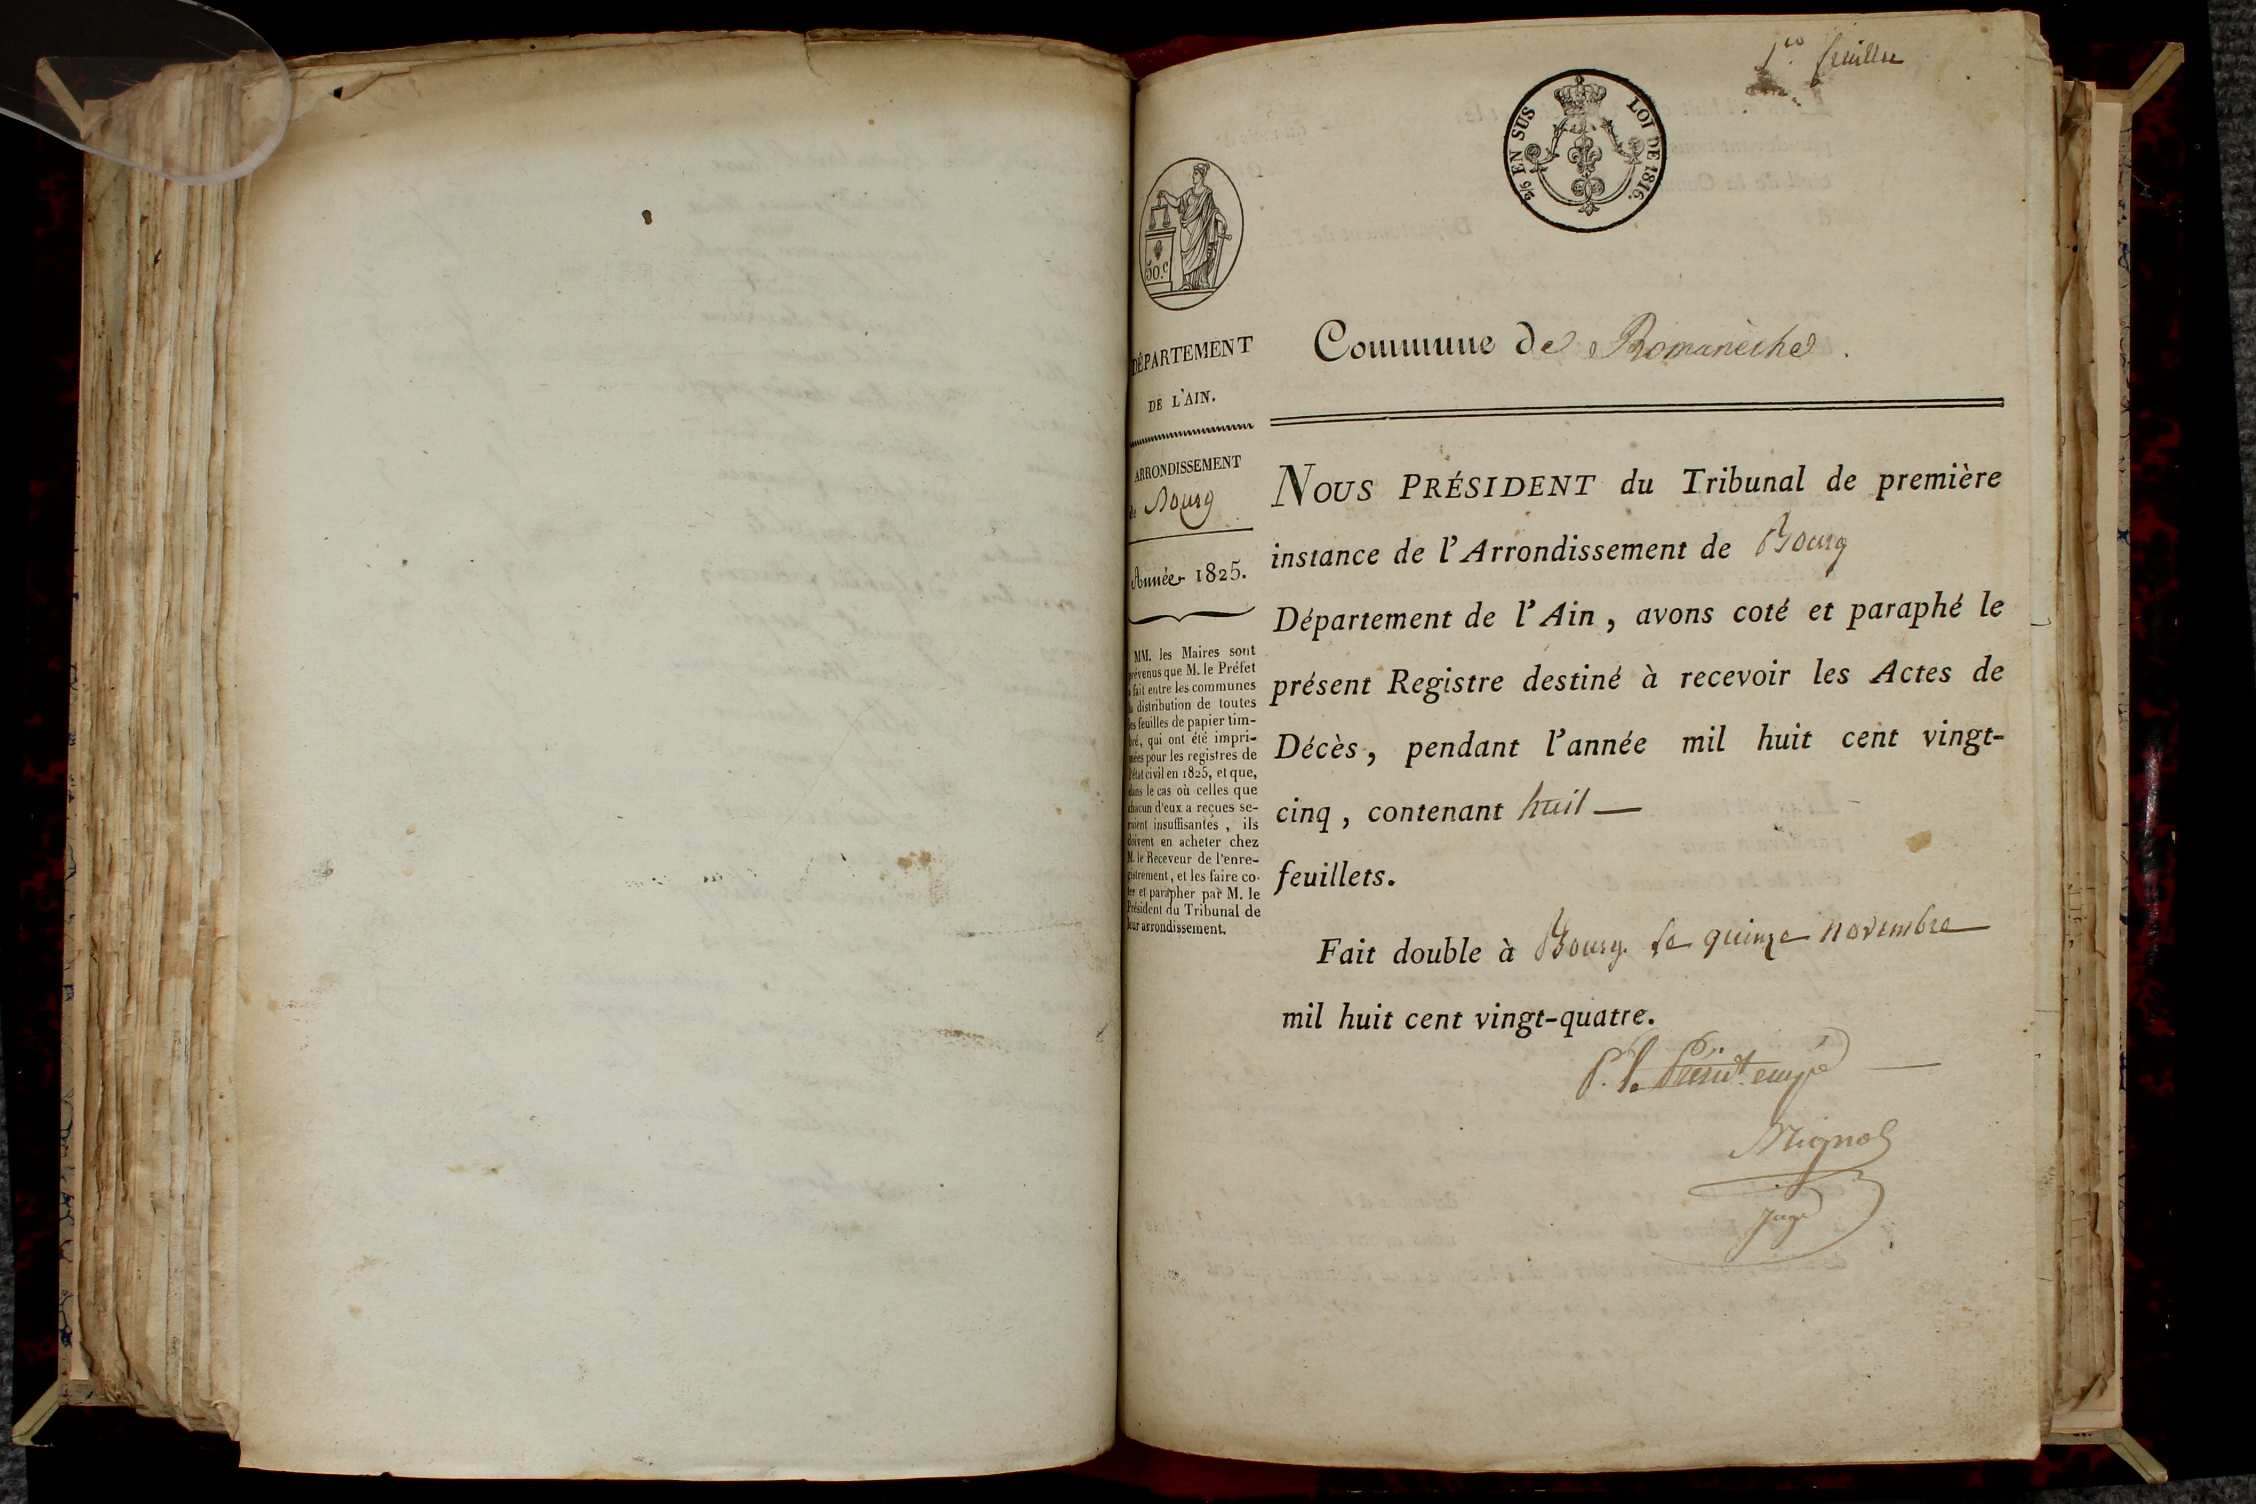 1.er feuillet
2/6 EN SUS LOI DE 1816.
50.c
DÉPARTEMENT
DE L'AIN.
ARRONDISSEMENT
de Bourg
Année 1825.
MM. les Maires sont
prévenus que M. le Préfet
a fait entre les communes
la distribution de toutes
les feuilles de papier tim-
bré, qui ont été impri-
mées pour les registres de
l'état civil en 1825, et que,
dans le cas où celles que
chacun d'eux a reçues se-
roient insuffisantes, ils
doivent en acheter chez
M. le Receveur de l'enre-
gistrement, et les faire co-
ter et parapher par M. le
Président du Tribunal de
leur arrondissement.
Commune de Romanèche.
NOUS PRÉSIDENT du Tribunal de première
instance de l'Arrondissement de Bourg
Département de l'Ain, avons coté et paraphé le
présent Registre destiné à recevoir les Actes de
Décès, pendant l'année mil huit cent vingt-
cinq, contenant huit —
feuillets.
Fait double à Bourg le quinze novembre
mil huit cent vingt-quatre.
P. le Présid.t empé
Mignot
Juge